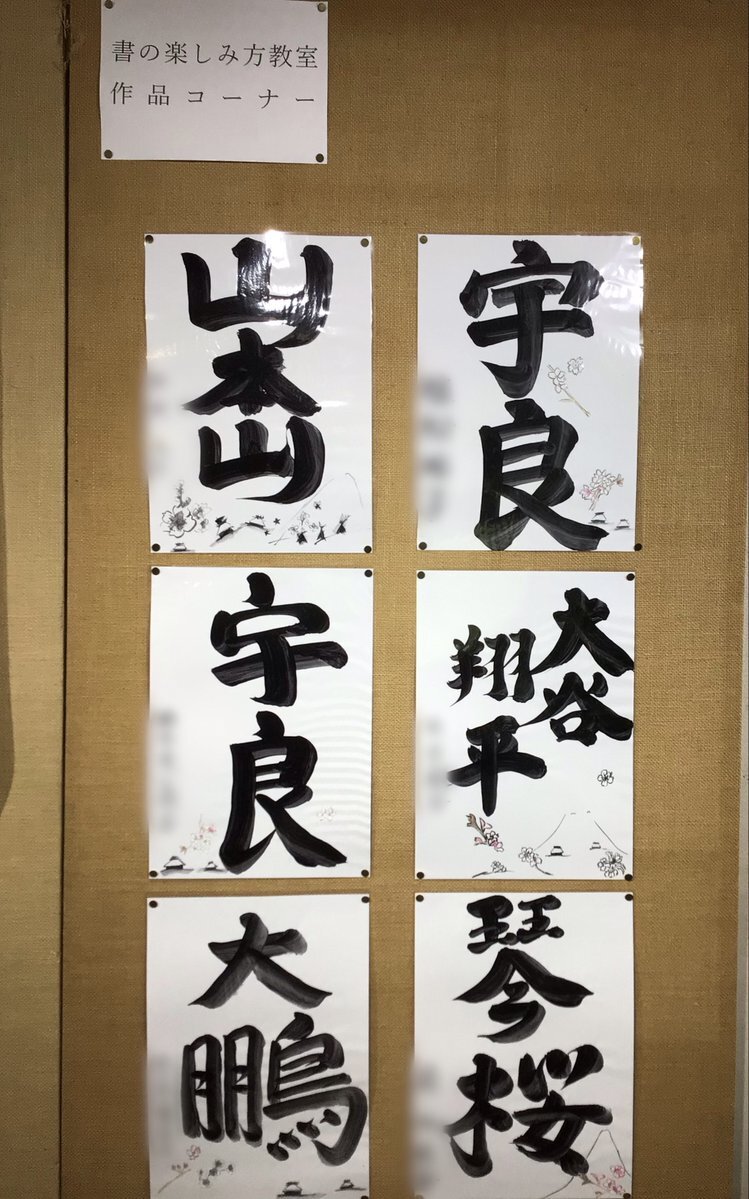 書の楽しみ方教室
作品コーナー
山本山
宇良
宇良
大谷
翔平
大鵬
琴桜